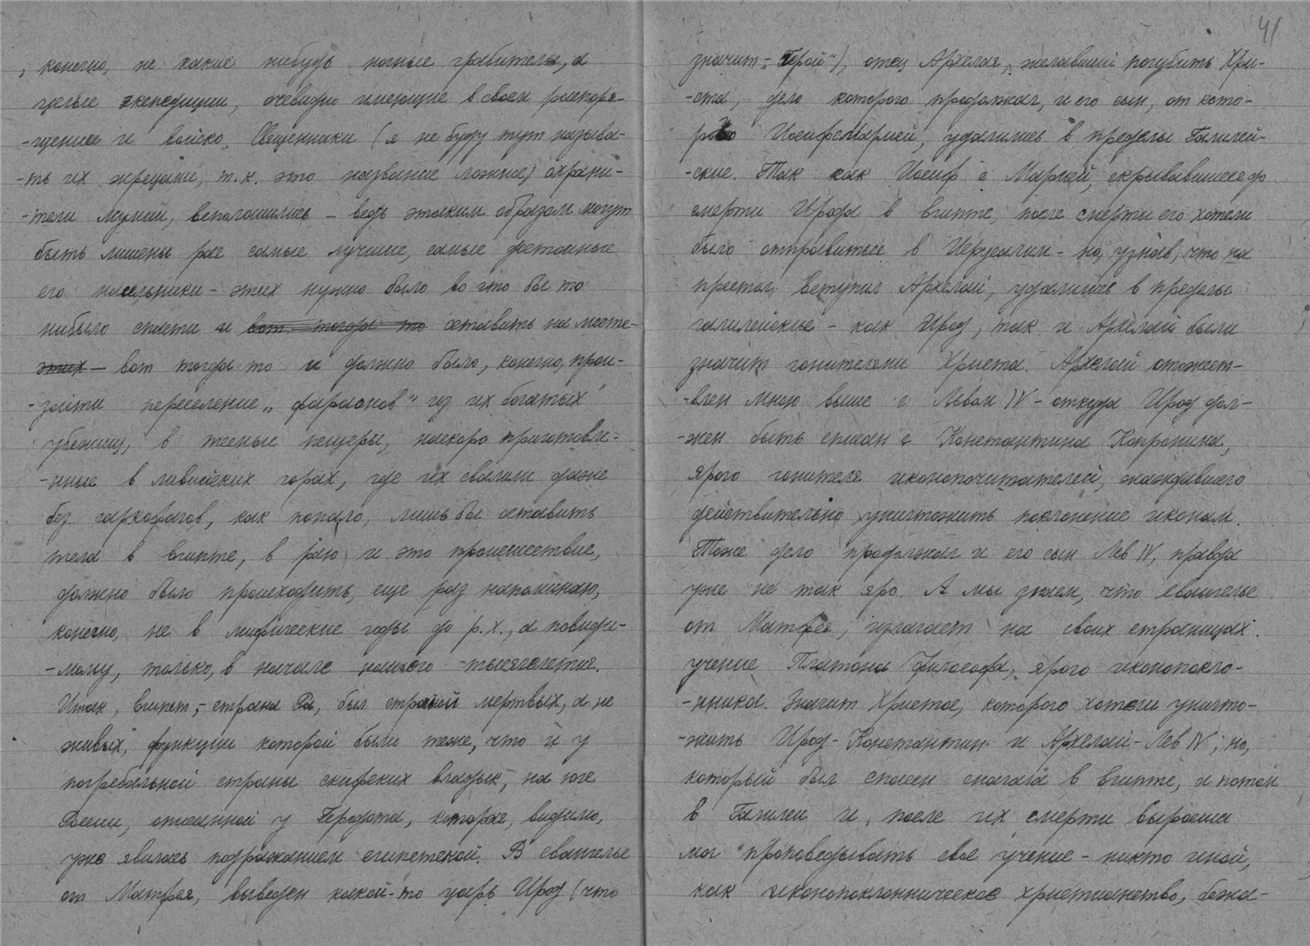 , конечно, не какие нибудь ночные грабители, а
целые экспедиции, очевидно имеющие в своем распоря-
-жении и войско. Священники (я не буду тут называ-
-ть их жрецами, т.к. это название ложное) охрани-
-тели мумий, всполошились – ведь этаким образом могут
быть лишены рае самые лучшие, самые
его насельники – этих нужно было во что бы то
нибыло спасти и вот тогда то оставить на месте –
этих – вот тогда то и должно было, конечно, прои-
-зойти переселение „фараонов" из их богатых
убежищ, в тесные пещеры, наскоро приготовле-
-нные в ливийских горах, где их свалили даже
без саркофагов, как попало, лишь бы оставить
тела в Египте, в раю и это происшествие,
должно было происходить, еще раз напоминаю,
конечно, не в мифические годы до р.х., а повиди-
-мому, только, в начале нашего тысячелетия.
Итак, Египет, – страна Ра, был страной мертвых, а не
живых, функции которой были теже, что и у
погребальной страны скифских владык, на юге
России, описанной у Геродота, которая, видимо,
уже явилась подражанием египетской. В евангелье
от Матфея, выведен какой-то царь Ирод (что
41
значит „Герой"), отец Архелая, желавший погубить Хри-
-ста, дело которого продолжал, и его сын, от кото-
рого Иосиф с Марией, удалились в пределы Галилей-
-ские. Так как Иосиф с Марией, скрывавшиеся до
смерти Ирода в Египте, после смерти его хотели
было отправиться в Иерусалим – но, узнав, что на
престол вступил Архелай, удалились в пределы
галилейские – как Ирод, так и Архелай были
значит гонителями Христа. Архелай отожест-
-влен мною выше с Львом IV – откуда Ирод дол-
-жен быть списан с Константина Копронима,
ярого гонителя иконопочитателей, жаждавшего
действительно уничтожить поклонение иконам.
Тоже дело продолжал и его сын Лев IV, правда
уже не так яро. А мы знаем, что евангелье
от Матфея, излагает на своих страницах
учение Платона философа, ярого иконопокло-
-нника. Значит Христос, которого хотели уничто-
-жить Ирод-Константин и Архелай-Лев IV; но,
который был спасен сначала в Египте, а потом
в Галилеи и, после их смерти выросши
мог проповедывать свое учение – никто иной,
как иконопоклонническое христианство, бежа-